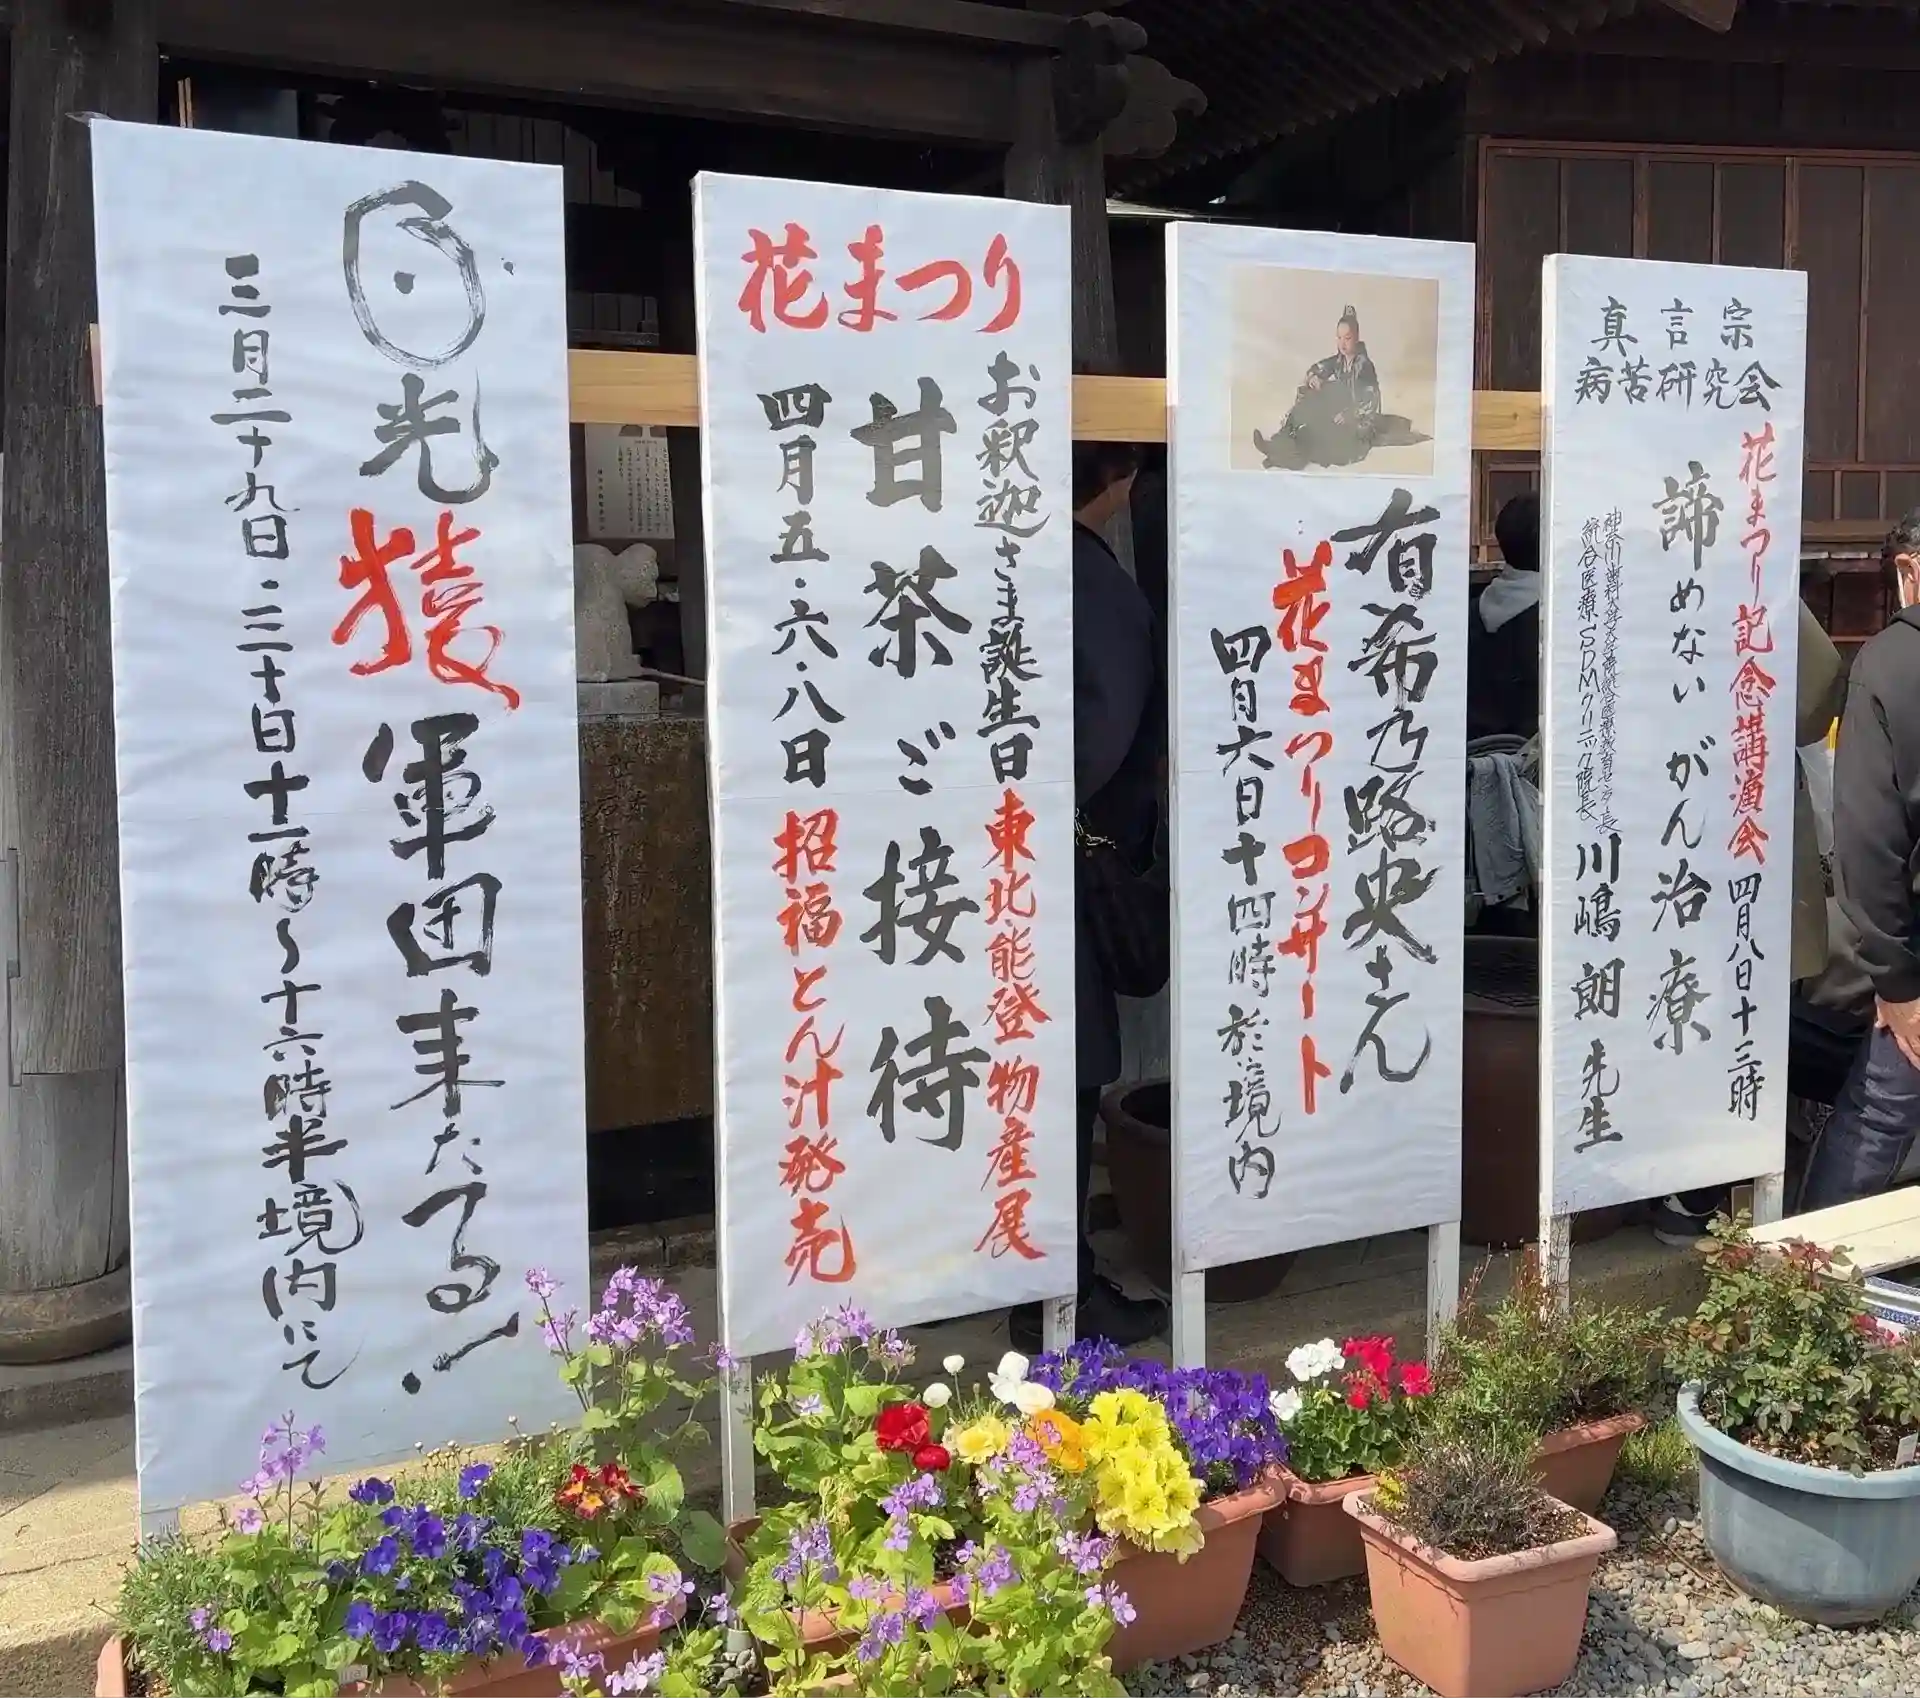 日光猿軍団来たる!
三月二十九日・三十日十一時〜十六時半境内にて
花まつり
お釈迦さま誕生日東北・能登物産展
甘茶ご接待
四月五・六・八日招福とん汁発売
有希乃路央さん
花まつりコンサート
四月六日十四時於:境内
真言宗
病苦研究会
花まつり記念講演会四月八日十三時
諦めないがん治療
統合医療SDMクリニック院長
川嶋朗先生